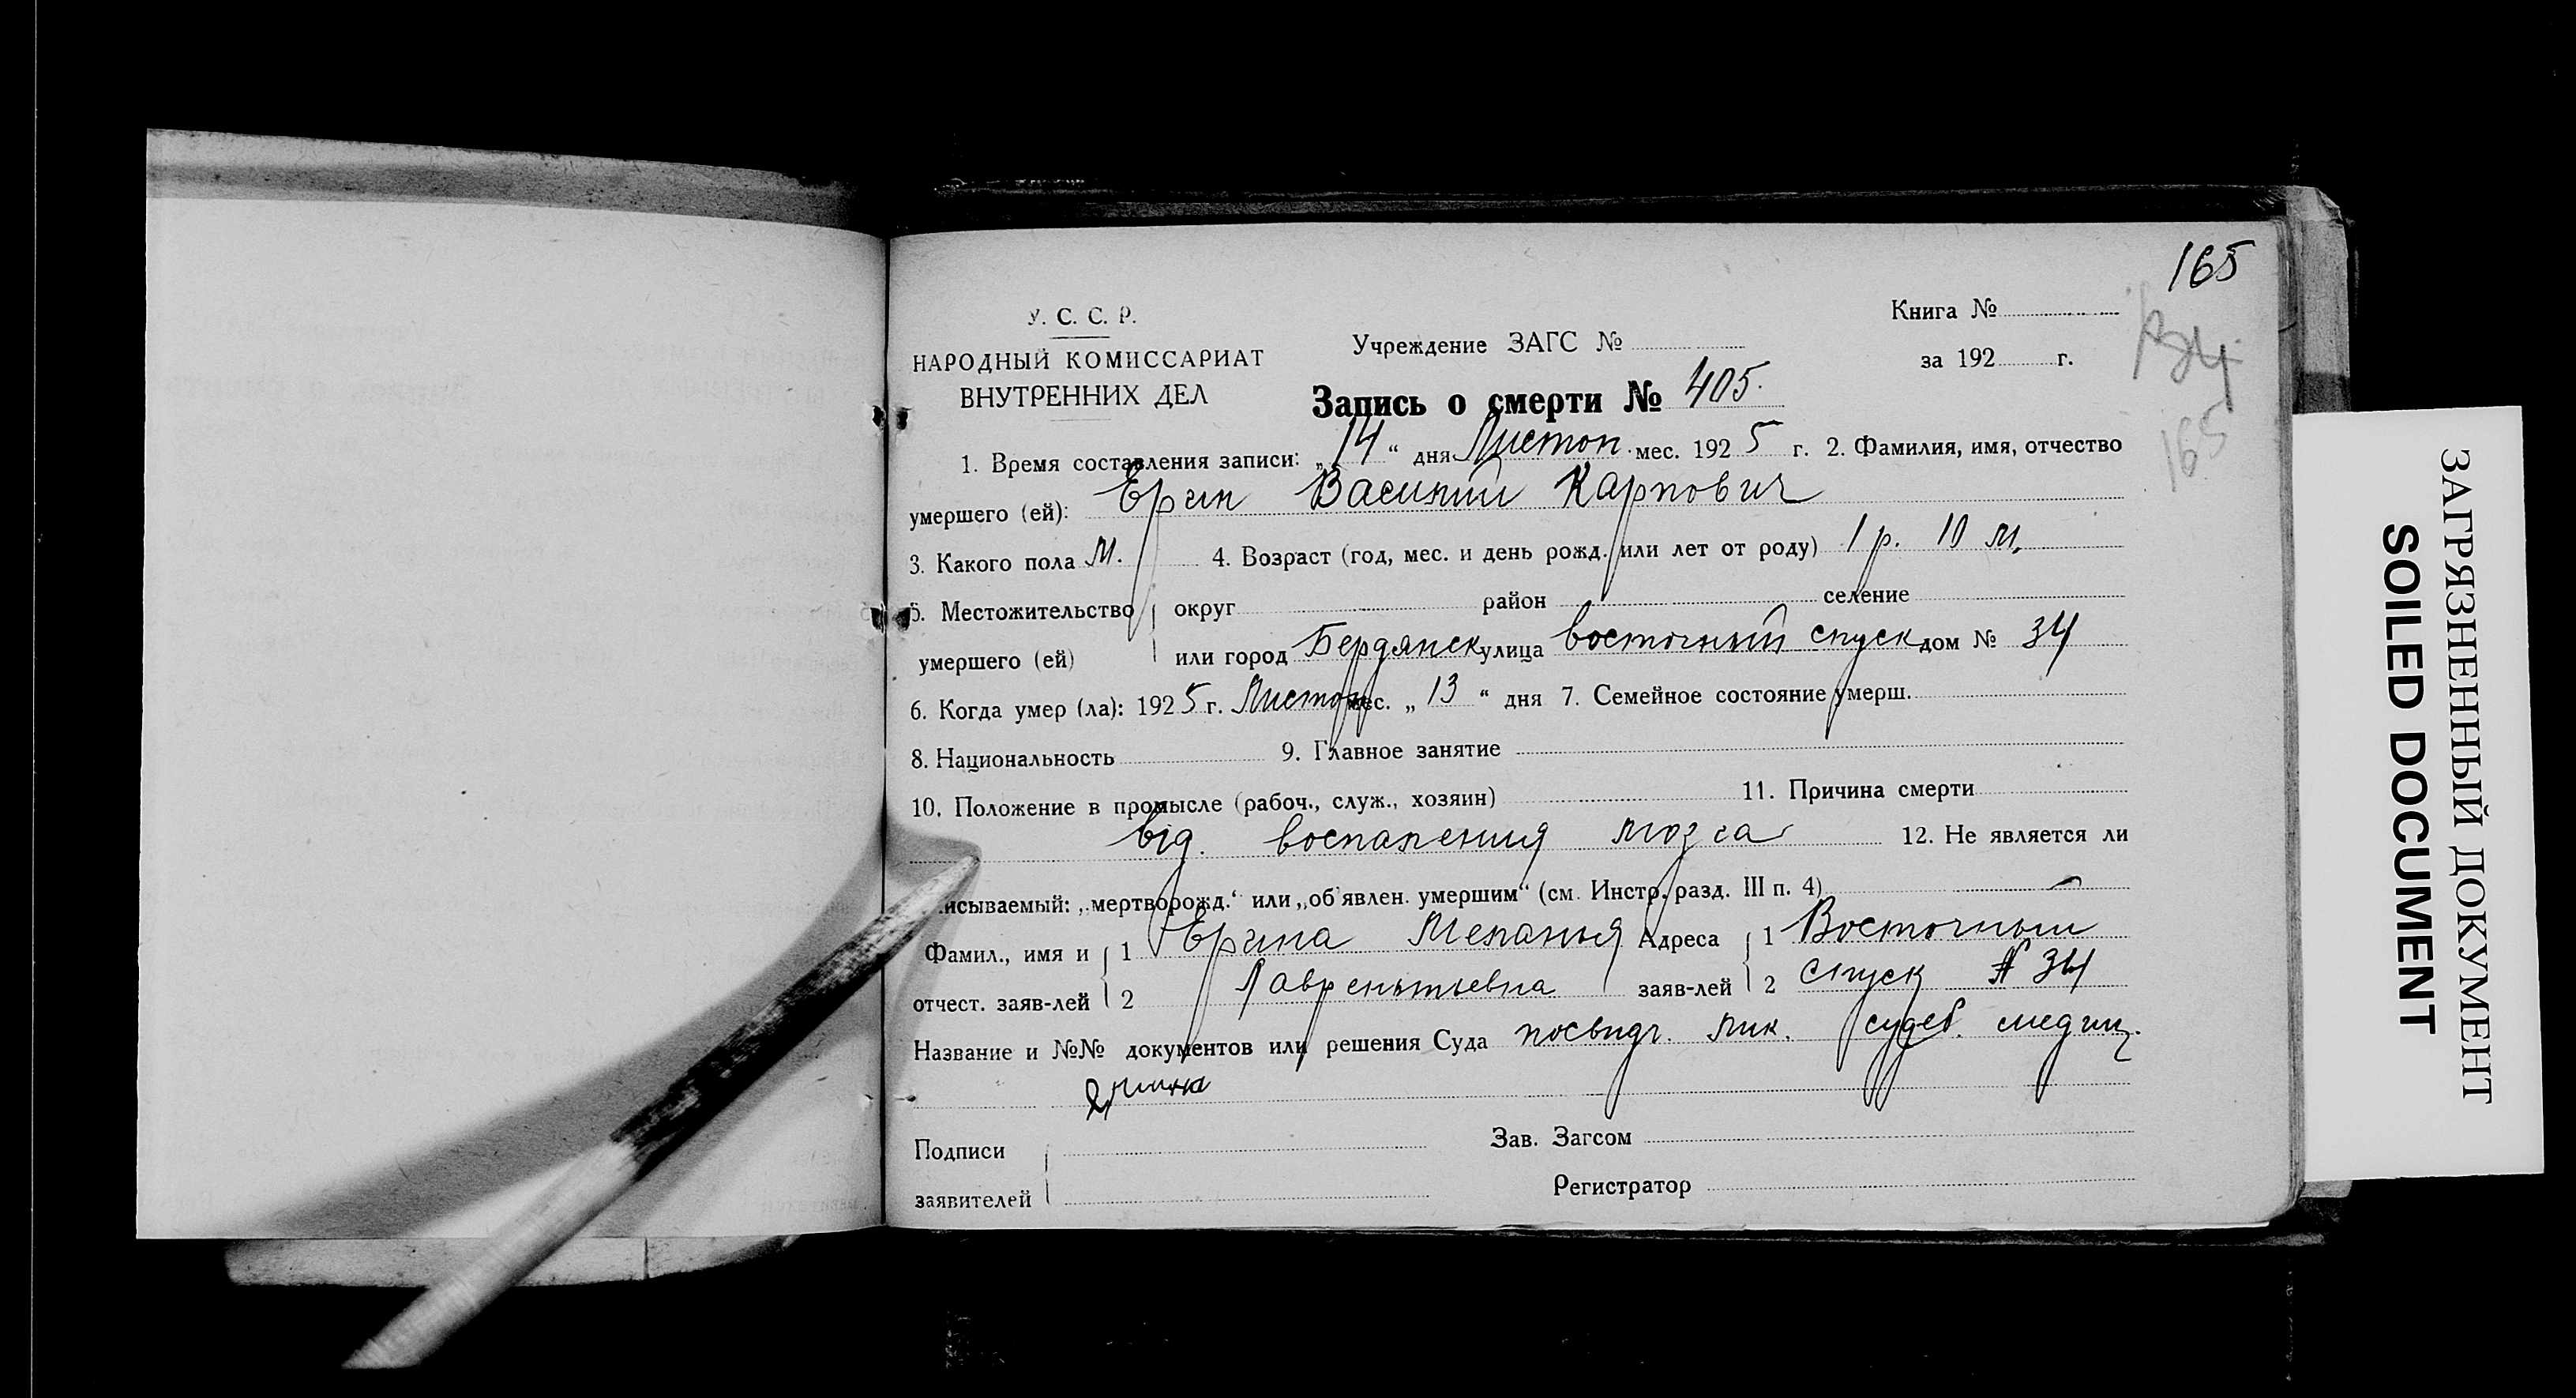 165
У. С. С. Р.
НАРОДНЫЙ КОМИССАРИАТ
ВНУТРЕННИХ ДЕЛ
Учреждение ЗАГС №
Книга №
за 192 г.
165
Запись о смерти № 405.
1. Время составления записи: „14“ дня Листоп. мес. 1925 г. 2. Фамилия, имя, отчество
умершего (ей): Ерин Василий Карпович
3. Какого пола М. 4. Возраст (год, мес. и день рожд. или лет от роду) 1 р. 10 м.
5. Местожительство округ район селение
умершего (ей) или город Бердянск улица восточный спуск дом № 34
6. Когда умер (ла): 1925 г. Листоп мес. „13“ дня 7. Семейное состояние умерш.
8. Национальность 9. Главное занятие
10. Положение в промысле (рабоч., служ., хозяин) 11. Причина смерти
від. воспаления мозга 12. Не является ли
исываемый: „мертворожд.“ или „об'явлен. умершим“ (см. Инстр. разд. III п. 4)
Фамил., имя и 1 Ерина Меланья Адреса 1 Восточный
отчест. заяв-лей 2 Лаврентьевна заяв-лей 2 спуск № 34
Название и №№ документов или решения Суда посвидч. лик. судеб. медиц.
Подписи Зав. Загсом
заявителей Регистратор
ЗАГРЯЗНЕННЫЙ ДОКУМЕНТ
SOILED DOCUMENT